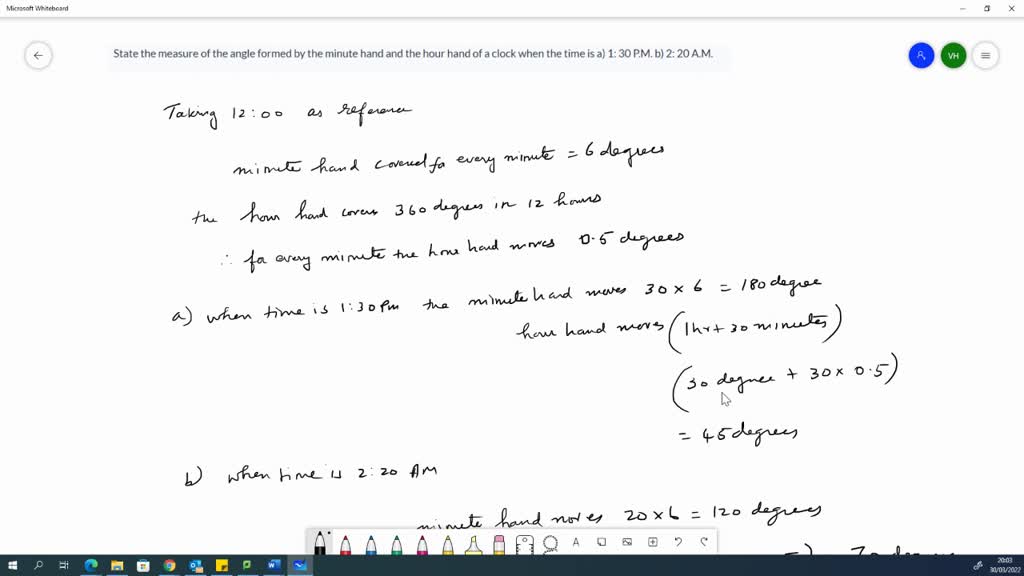 Microsoft Whiteboard
State the measure of the angle formed by the minute hand and the hour hand of a clock when the time is a) 1: 30 P.M. b) 2: 20 A.M.
VH
Taking 12:00 as reference
minute hand covered for every minute = 6 degrees
the hour hand covers 360 degrees in 12 hours
∴ for every minute the hour hand moves 0.5 degrees
a) when time is 1:30 PM the minute hand moves 30 × 6 = 180 degree
hour hand moves (1hr + 30 minutes)
(30 degree + 30 × 0.5)
= 45 degrees
b) when time is 2:20 AM
minute hand moves 20 × 6 = 120 degrees
A
20:03
30/03/2022